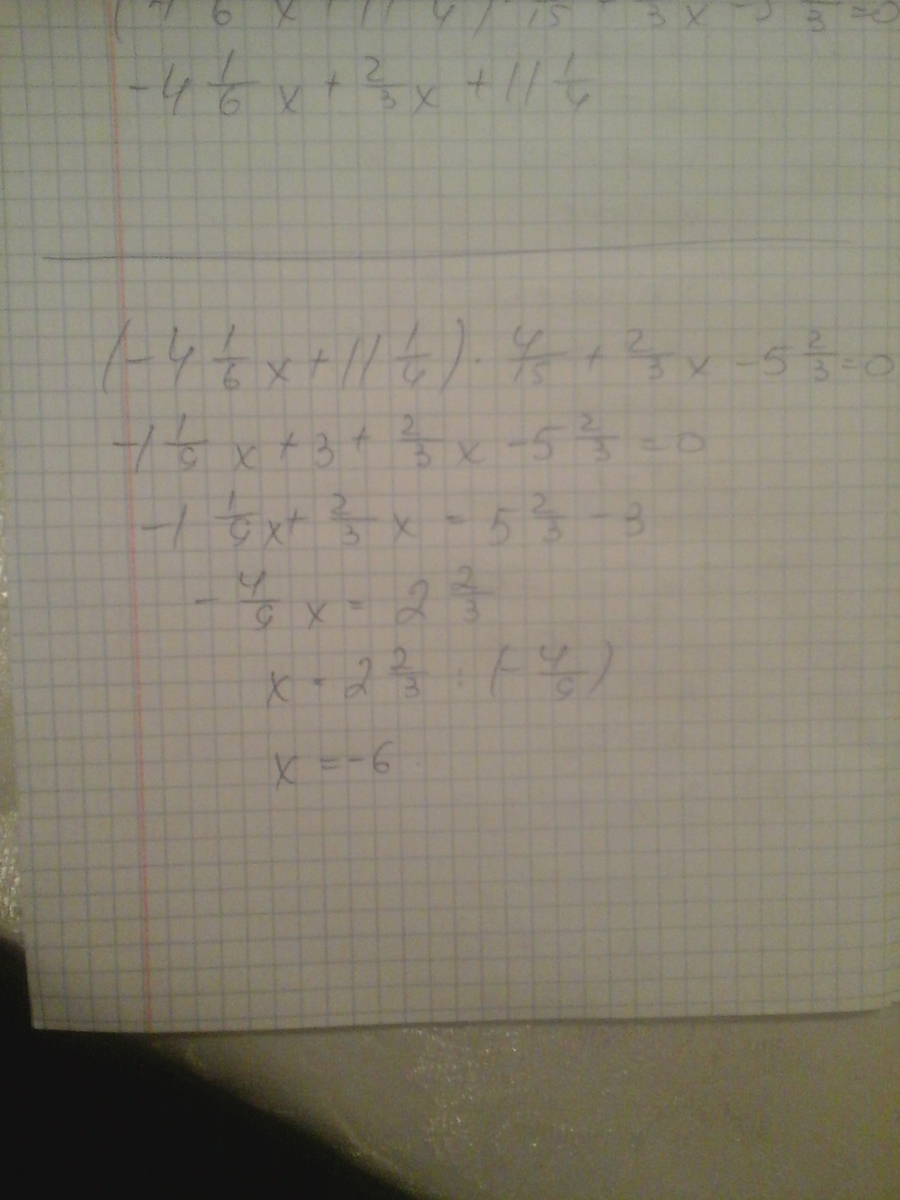 6 x + 11 4) 15 3 x - 5 2/3 = 0
-4 1/6 x + 2/3 x + 11 1/4
(-4 1/6 x + 11 1/4) · 4/15 + 2/3 x - 5 2/3 = 0
-1 1/9 x + 3 + 2/3 x - 5 2/3 = 0
-1 1/9 x + 2/3 x = 5 2/3 - 3
- 4/9 x = 2 2/3
x = 2 2/3 : (- 4/9)
x = -6